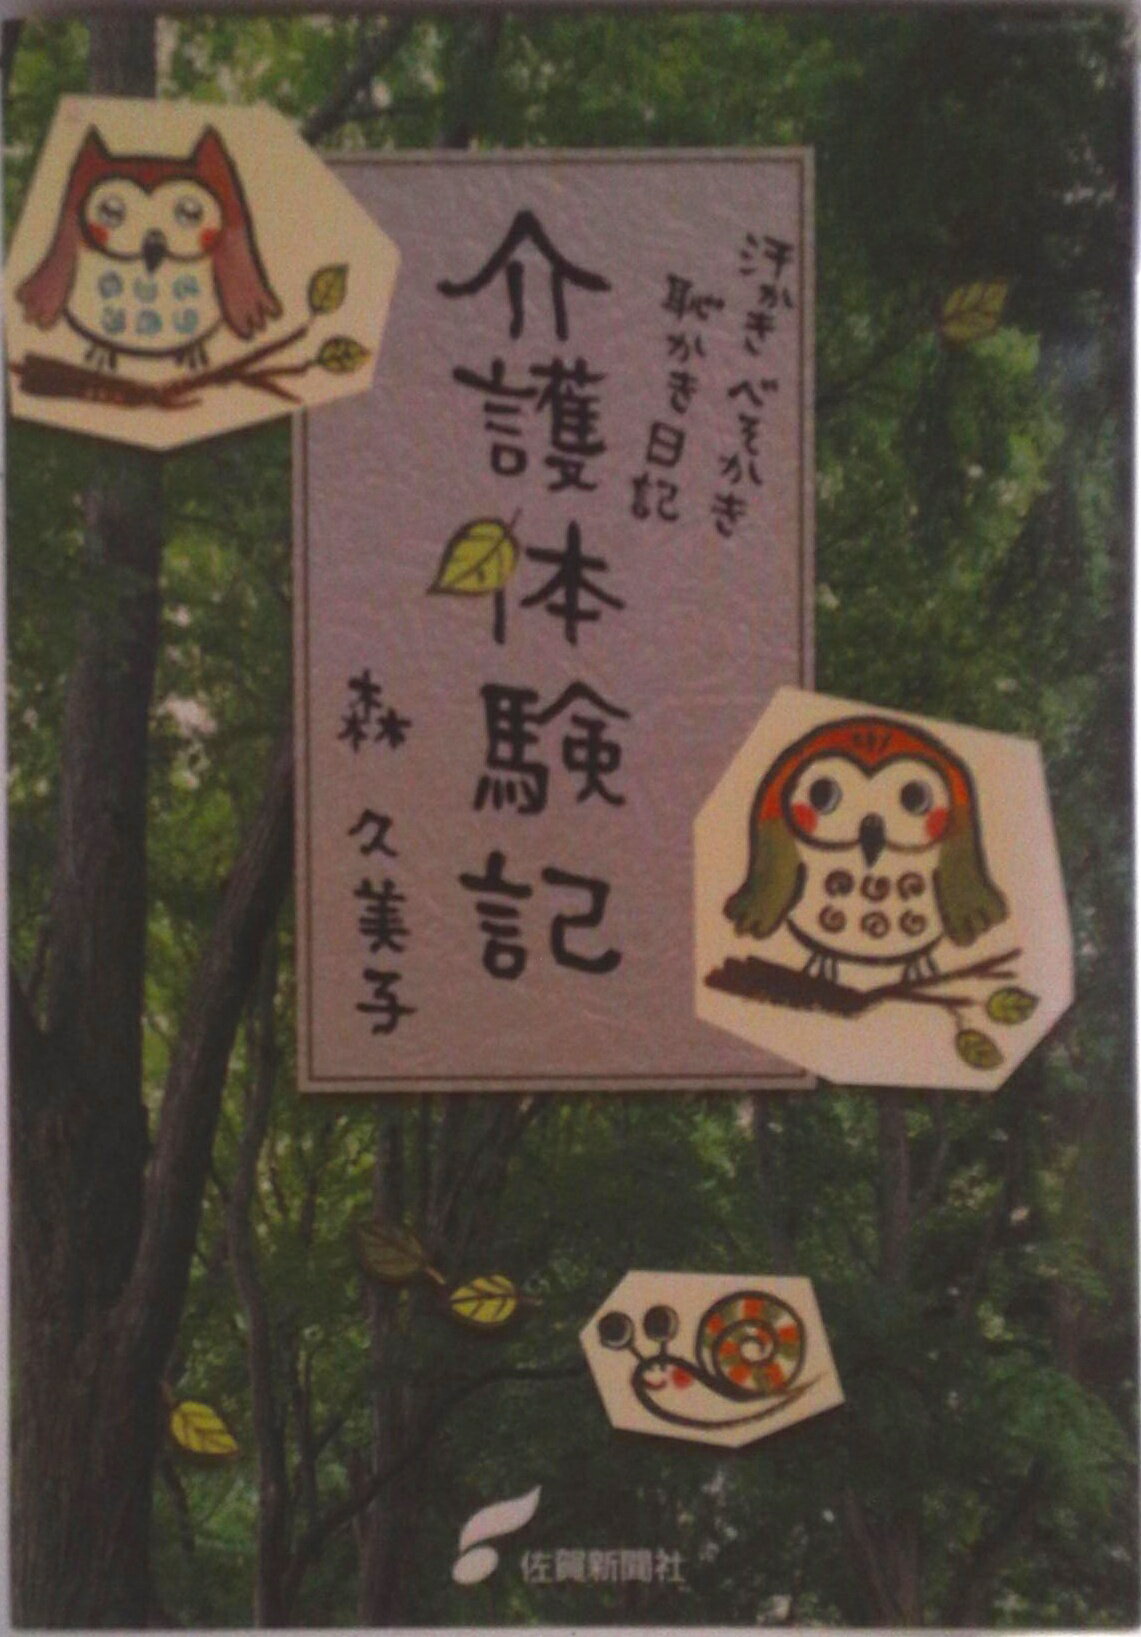 汗かき べそかき
恥かき日記
介護体験記
森 久美子
佐賀新聞社